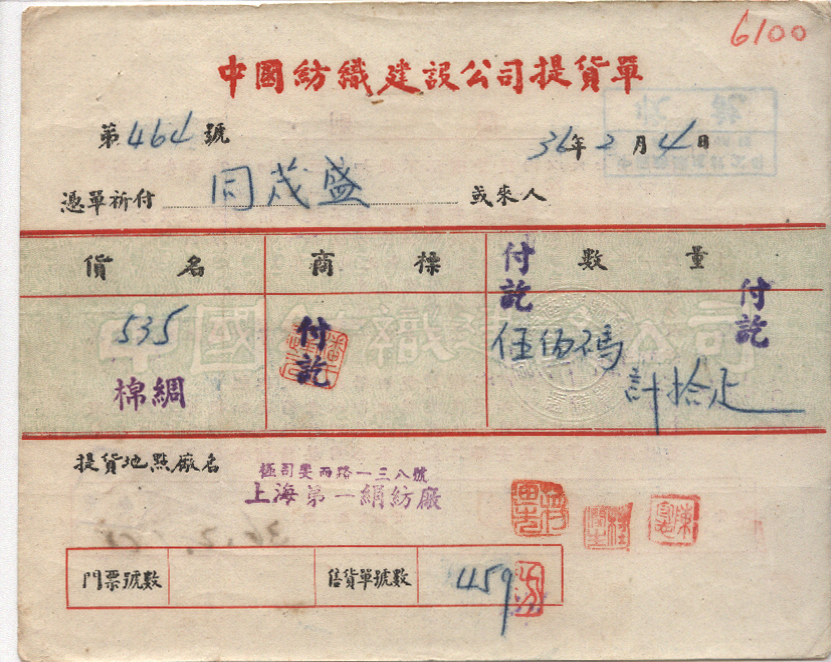 6100
中國紡織建設公司提貨單
第464號
36年2月4日
憑單祈付 同茂盛 或來人
貨名 商標 數量
付訖
付訖
535
棉綢
付訖
伍佰碼
計拾疋
中國紡織建設公司
提貨地點廠名
極司斐而路一三八號
上海第一絹紡廠
門票號數 售貨單號數 459